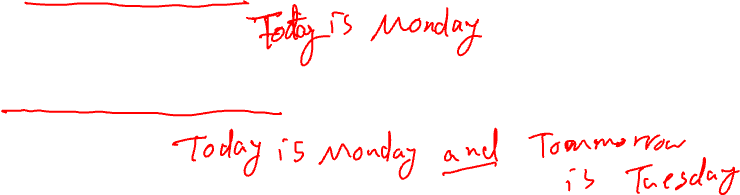 Today is Monday
Today is Monday and Tommorrow
is Tuesday